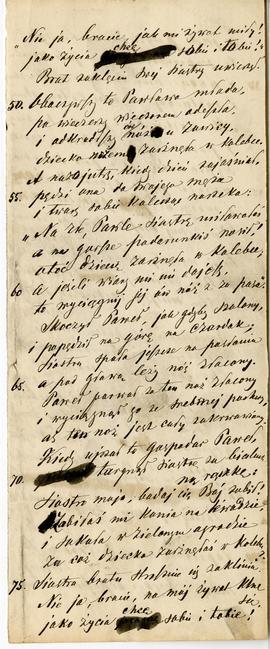 "Nie ja, bracie, jak mi żywot miły!
jako życia chcę sobie i tobie!"
Brat zaklęciu swej siostry uwierzył.
50. Obaczywszy to Pawłowa młoda,
po wieczerzy wieczorem odeszła,
i odkradłszy nóż u zawicy,
dziecko nożem zarznęła w kolebce.
A nazajutrz, kiedy dzień zajaśniał,
55. pędzi ona do swojego męża
i twarz sobie kalecząc narzeka:
"Na złe, Pawle siostrę miłowałeś
a na gorsze podarunkiś nosił!
a toć dziecię zarznęła w kolebce,
60 A jeśli wiary mi nie dajesz,
to wyciągnij jej ów nóż z za pasa."
Skoczył Paweł, jak gdyby szalony,
i popędził na górę na czardak;
Siostra spała jeszcze na posłaniu
65. a pod głową leży nóż złocony.
Paweł porwał za ten nóż złocony
i wyciągnął go ze srebrnej pochwy,
aż ten nóż jest cały zakrwawiony
Kiedy ujrzał to gospodar Paweł,
70. targnął siostrę za bieluchną rączkę:
Siostro moja, bodaj cię Bóg zabił!
Zabiłaś mi konia na
i sokoła w zielonym ogrodzie
Za coż dziecko zarznęłaś w kolebce
75. Siostra bratu strasznie się zaklina:
Nie ja, bracie, na mój żywot klnę się,
jako życia chcę sobie i tobie!